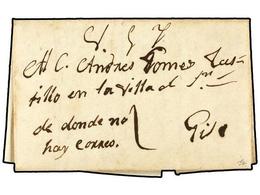 Al C. Andres Gomez Cas-
tillo en la Villa del
de donde no
hay correo.